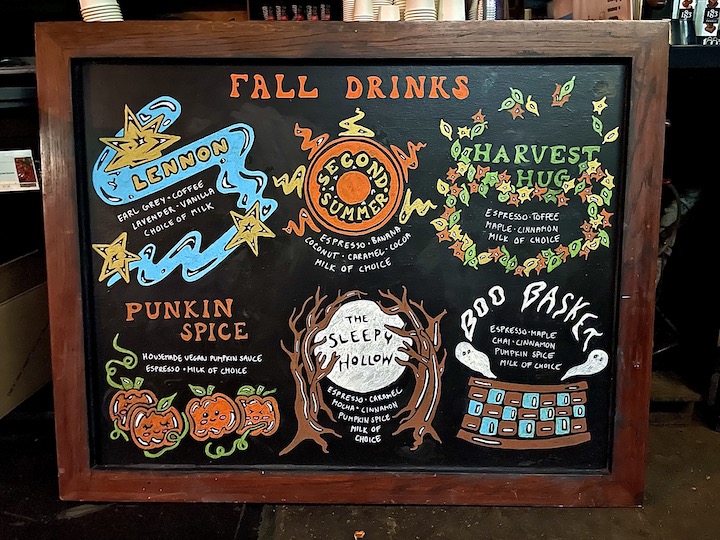 FALL DRINKS
LENNON
EARL GREY • COFFEE
LAVENDER • VANILLA
CHOICE OF MILK
SECOND
SUMMER
ESPRESSO • BANANA
COCONUT • CARAMEL • COCOA
MILK OF CHOICE
HARVEST
HUG
ESPRESSO • TOFFEE
MAPLE • CINNAMON
MILK OF CHOICE
PUNKIN
SPICE
HOUSEMADE VEGAN PUMPKIN SAUCE
ESPRESSO • MILK OF CHOICE
THE
SLEEPY
HOLLOW
ESPRESSO • CARAMEL
MOCHA • CINNAMON
PUMPKIN SPICE
MILK OF
CHOICE
BOO BASKET
ESPRESSO • MAPLE
CHAI • CINNAMON
PUMPKIN SPICE
MILK OF CHOICE